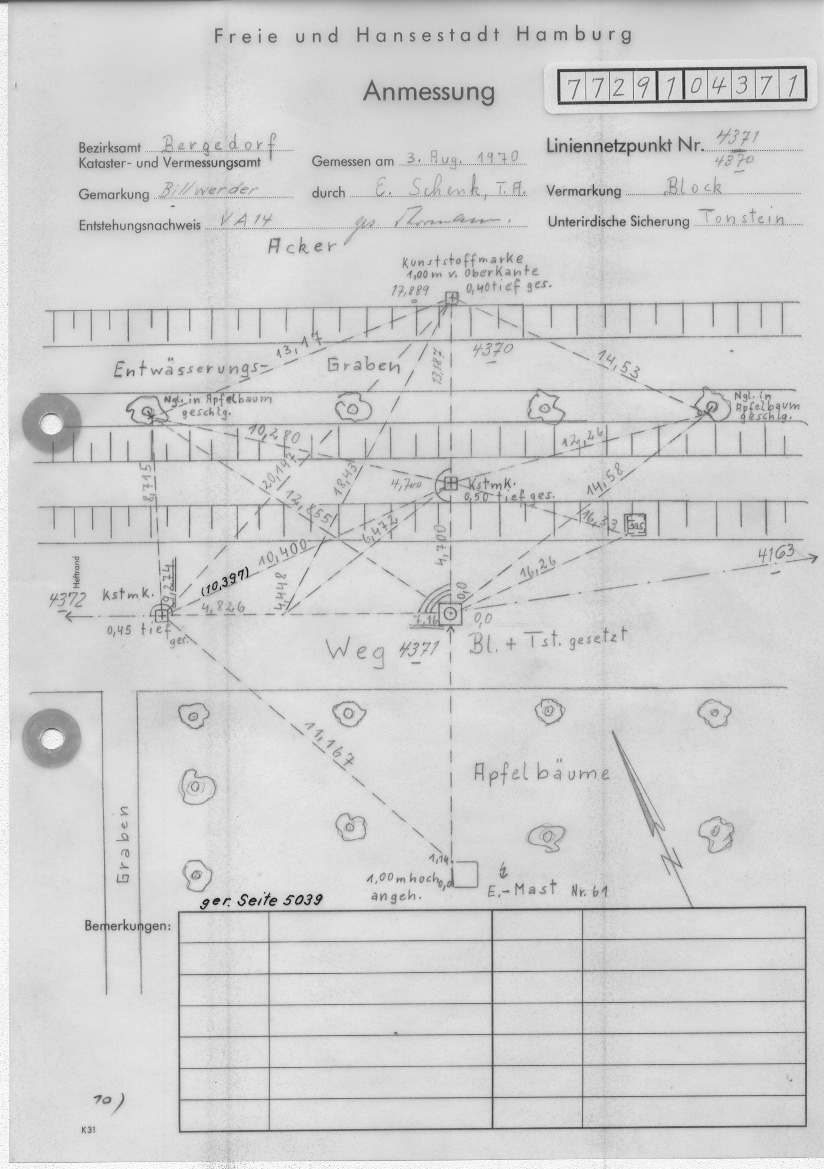 Freie und Hansestadt Hamburg
Anmessung
7729104371
Bezirksamt Bergedorf
Kataster- und Vermessungsamt
Gemessen am 3. Aug. 1970
Liniennetzpunkt Nr. 4371
4370
Gemarkung Billwerder
durch E. Schenk, T.A.
Vermarkung Block
Entstehungsnachweis VA 14
Unterirdische Sicherung Tonstein
Acker
Kunststoffmarke
1,00 m v. Oberkante
17,889
0,40 tief ges.
13,17
Entwässerungs-
Graben
13,187
4370
14,53
Ngl. in Apfelbaum
geschlg.
Ngl. in
Apfelbaum
geschlg.
10,280
12,26
8,715
20,147
18,43
4,700
Kstmk.
0,50 tief ges.
14,58
12,855
6,472
16,33
Gas
10,400
4,700
16,26
4163
Heftrand
(10,397)
9,274
4372
Kstmk.
4,826
4,448
0,0
7,16
0,0
0,45 tief
ges.
Weg
4371
Bl. + Tst. gesetzt
11,167
Apfelbäume
Graben
1,14
1,00 m hoch
0,0
angeh.
E.-Mast Nr. 61
ger. Seite 5039
Bemerkungen:
10)
K31